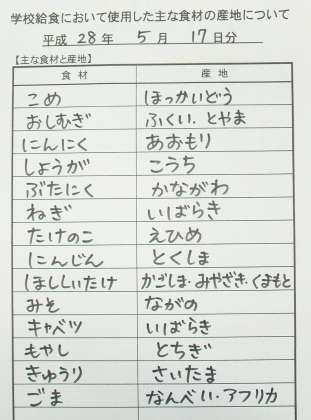 学校給食において使用した主な食材の産地について
平成 28 年 5 月 17 日分
【主な食材と産地】
食材 産地
こめ ほっかいどう
おしむぎ ふくい・とやま
にんにく あおもり
しょうが こうち
ぶたにく かながわ
ねぎ いばらき
たけのこ えひめ
にんじん とくしま
ほししいたけ かごしま・みやざき・くまもと
みそ ながの
キャベツ いばらき
もやし とちぎ
きゅうり さいたま
ごま なんべい・アフリカ